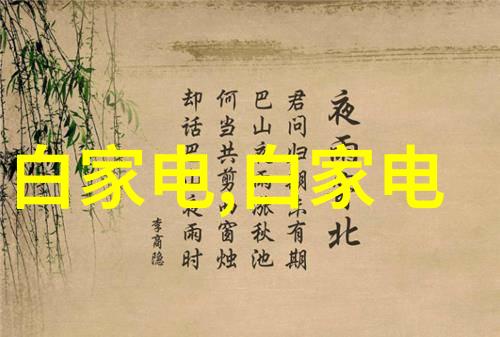 白家电,白家电
夜雨寄北
君问归期未有期
巴山夜雨涨秋池
何当共剪西窗烛
却话巴山夜雨时
李商隐